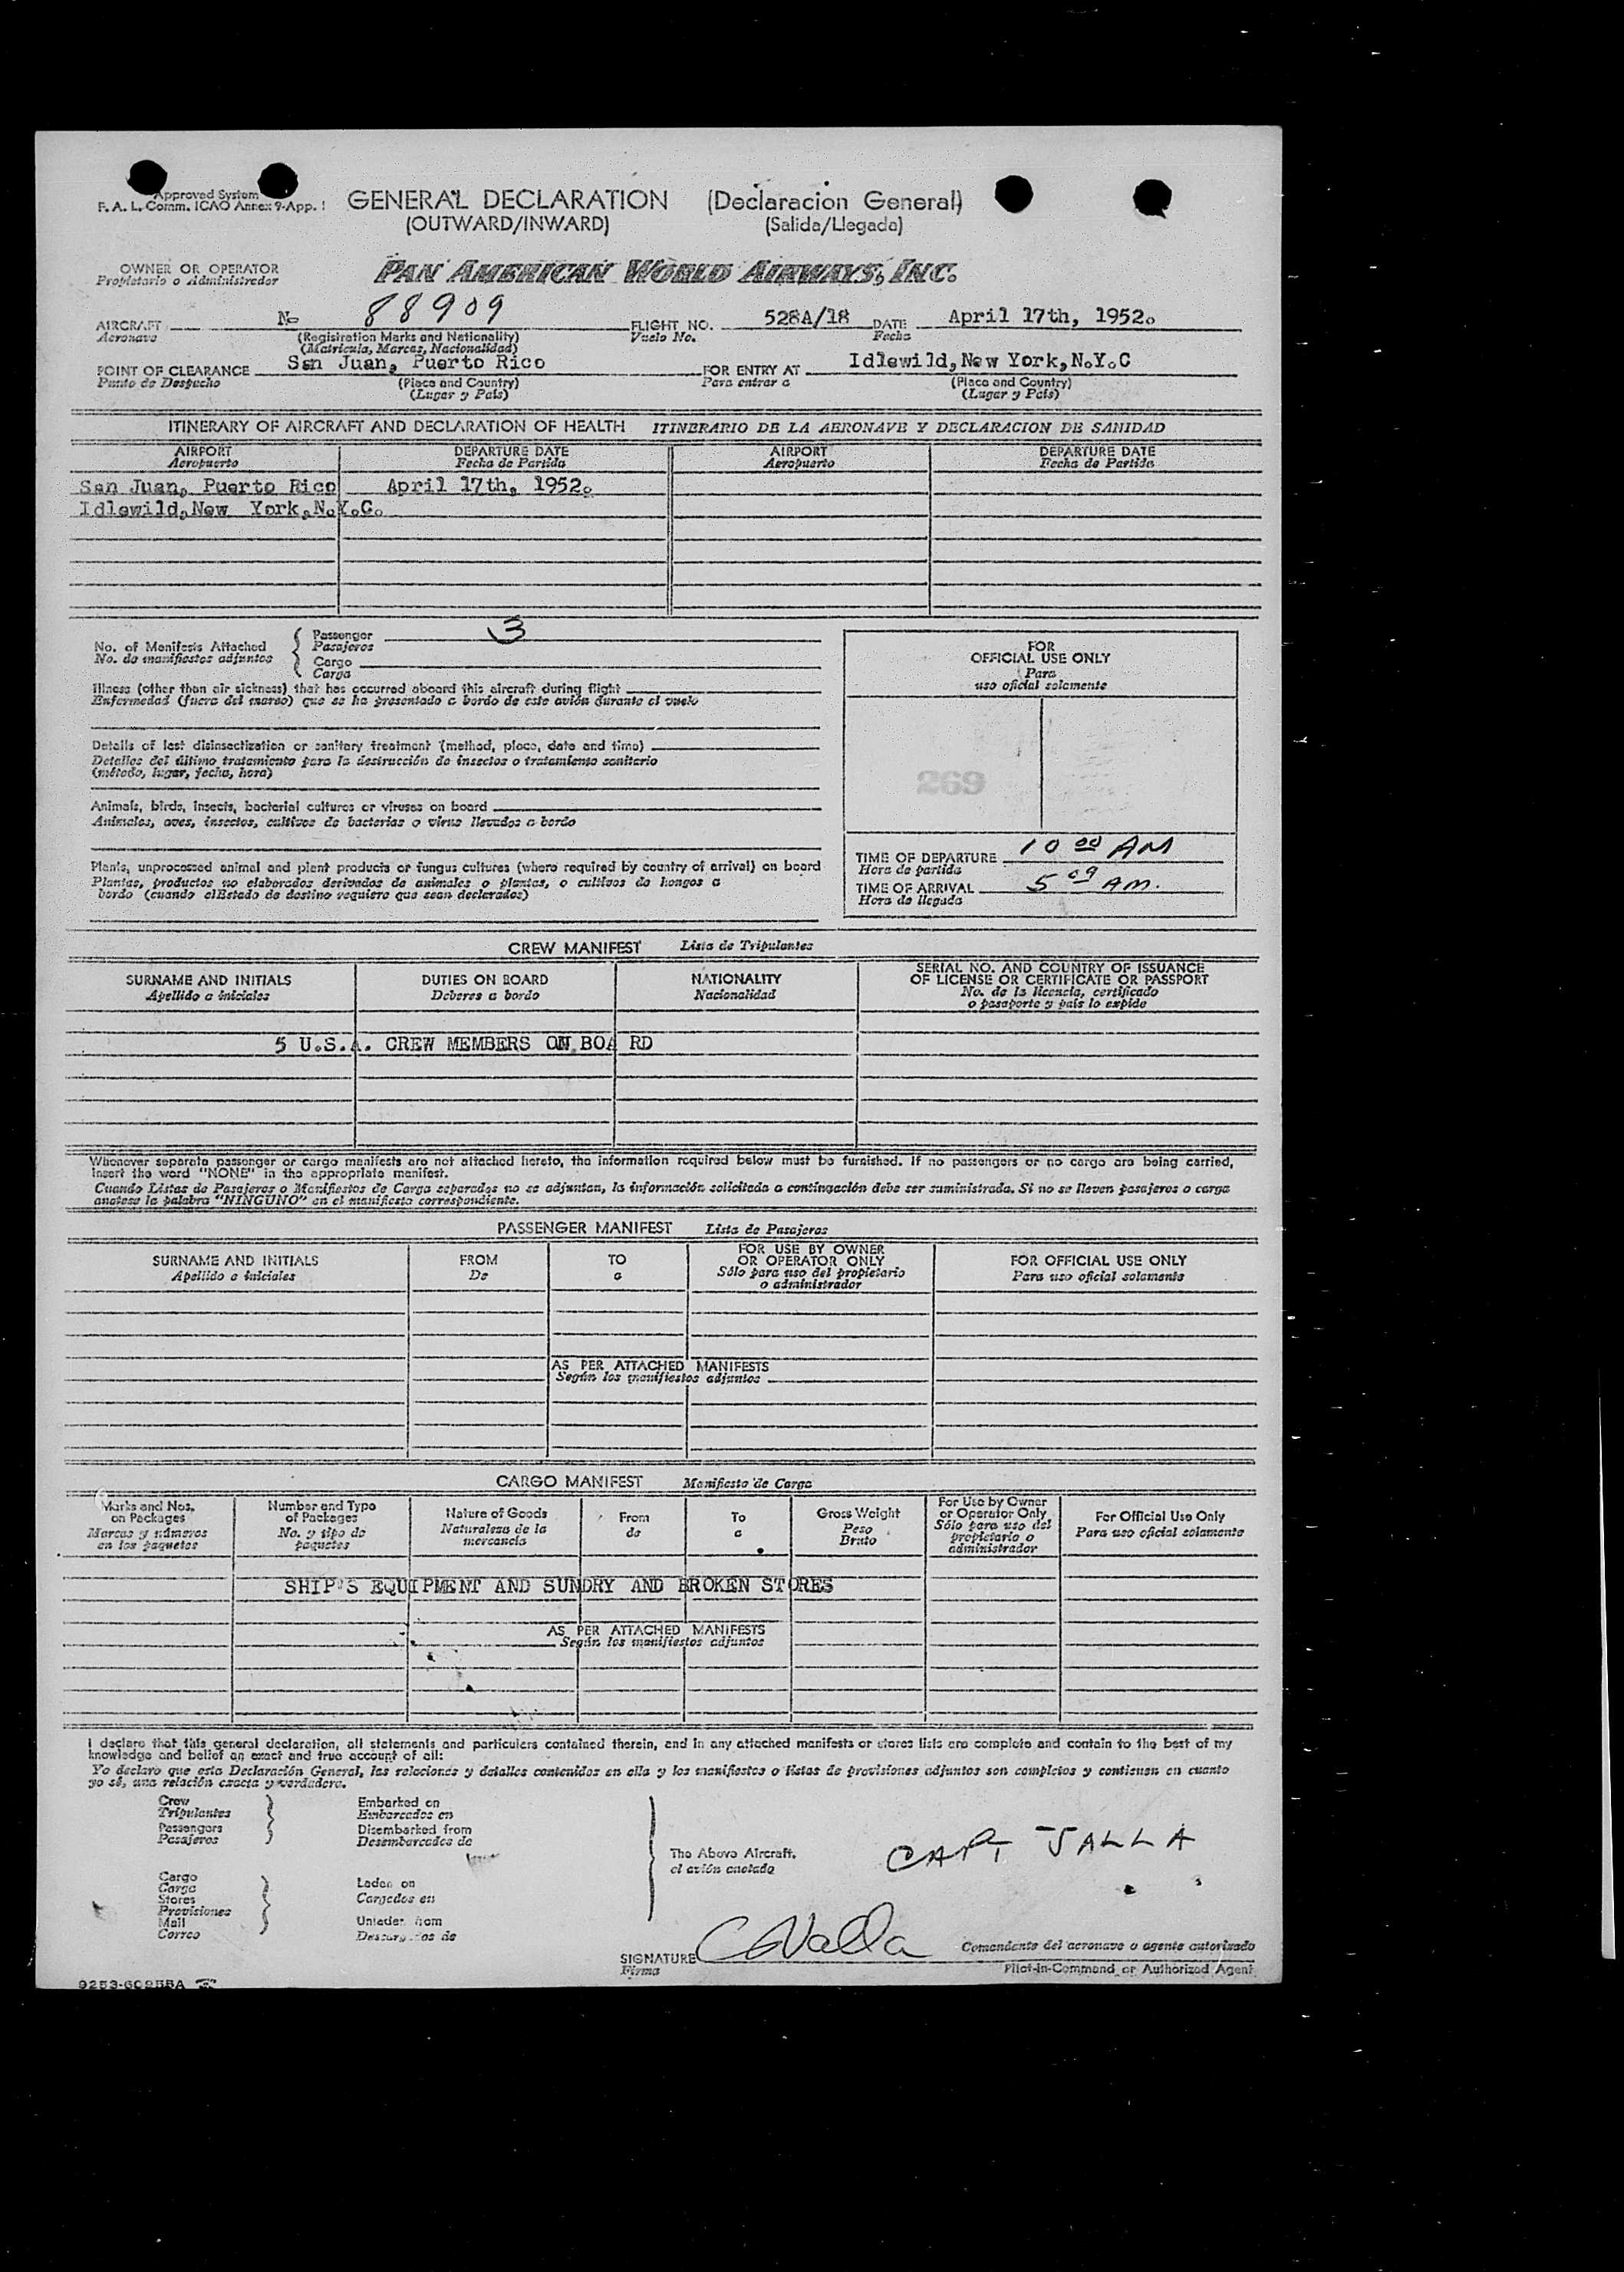 Approved System
F. A. L. Comm. ICAO Annex 9-App. 1
GENERAL DECLARATION (Declaracion General)
(OUTWARD/INWARD) (Salida/Llegada)
OWNER OR OPERATOR
Propietario o Administrador
PAN AMERICAN WORLD AIRWAYS, INC.
AIRCRAFT N- 88909 FLIGHT NO. 528A/18 DATE April 17th, 1952.
Aeronave (Registration Marks and Nationality) Vuelo No. Fecha
(Matricula, Marcas, Nacionalidad)
POINT OF CLEARANCE San Juan, Puerto Rico FOR ENTRY AT Idlewild,New York,N.Y.C
Punto de Despacho (Place and Country) Para entrar a (Place and Country)
(Lugar y País) (Lugar y País)
ITINERARY OF AIRCRAFT AND DECLARATION OF HEALTH ITINERARIO DE LA AERONAVE Y DECLARACION DE SANIDAD
AIRPORT DEPARTURE DATE AIRPORT DEPARTURE DATE
Aeropuerto Fecha de Partida Aeropuerto Fecha de Partida
San Juan, Puerto Rico April 17th, 1952.
Idlewild,New York,N.Y.C.
No. of Manifests Attached
No. de manifiestos adjuntos
Passenger 3
Pasajeros
Cargo
Carga
Illness (other than air sickness) that has occurred aboard this aircraft during flight
Enfermedad (fuera del mareo) que se ha presentado a bordo de este avión durante el vuelo
Details of last disinsectization or sanitary treatment (method, place, date and time)
Detalles del último tratamiento para la destrucción de insectos o tratamiento sanitario
(método, lugar, fecha, hora)
Animals, birds, insects, bacterial cultures or viruses on board
Animales, aves, insectos, cultivos de bacterias o virus llevados a bordo
Plants, unprocessed animal and plant products or fungus cultures (where required by country of arrival) on board
Plantas, productos no elaborados derivados de animales o plantas, o cultivos de hongos a
bordo (cuando elEstado de destino requiere que sean declarados)
FOR
OFFICIAL USE ONLY
Para
uso oficial solamente
269
TIME OF DEPARTURE 10 00 AM
Hora de partida
TIME OF ARRIVAL 5 09 AM.
Hora de llegada
CREW MANIFEST Lista de Tripulantes
SURNAME AND INITIALS DUTIES ON BOARD NATIONALITY SERIAL NO. AND COUNTRY OF ISSUANCE
OF LICENSE OR CERTIFICATE OR PASSPORT
Apellido a iniciales Deberes a bordo Nacionalidad No. de la licencia, certificado
o pasaporte y país lo expide
5 U.S.A. CREW MEMBERS ON BOA RD
Whenever separate passenger or cargo manifests are not attached hereto, the information required below must be furnished. If no passengers or no cargo are being carried,
insert the word "NONE" in the appropriate manifest.
Cuando Listas de Pasajeros o Manifiestos de Carga separados no se adjuntan, la información solicitada a continuación debe ser suministrada. Si no se lleven pasajeros o carga
anotese la palabra "NINGUNO" en el manifiesto correspondiente.
PASSENGER MANIFEST Lista de Pasajeros
SURNAME AND INITIALS FROM TO FOR USE BY OWNER
OR OPERATOR ONLY FOR OFFICIAL USE ONLY
Apellido a iniciales De a Sólo para uso del propietario
o administrador Para uso oficial solamente
AS PER ATTACHED MANIFESTS
Según los manifiestos adjuntos
CARGO MANIFEST Manifiesto de Carga
Marks and Nos.
on Packages
Marcas y números
en los paquetes
Number and Type
of Packages
No. y tipo de
paquetes
Nature of Goods
Naturaleza de la
mercancía
From
de
To
a
Gross Weight
Peso
Bruto
For Use by Owner
or Operator Only
Sólo para uso del
propietario o
administrador
For Official Use Only
Para uso oficial solamente
SHIP'S EQUIPMENT AND SUNDRY AND BROKEN STORES
AS PER ATTACHED MANIFESTS
Según los manifiestos adjuntos
I declare that this general declaration, all statements and particulars contained therein, and in any attached manifests or stores lists are complete and contain to the best of my
knowledge and belief an exact and true account of all:
Yo declaro que esta Declaración General, las relaciones y detalles contenidos en ella y los manifiestos o listas de provisiones adjuntos son completos y contienen en cuanto
yo sé, una relación exacta y verdadera.
Crew
Tripulantes
Passengers
Pasajeros
Embarked on
Embarcados en
Disembarked from
Desembarcados de
Cargo
Carga
Stores
Provisiones
Mail
Correo
Laden on
Cargados en
Unladen from
The Above Aircraft.
el avión anotado
CAPT JALLA
SIGNATURE Comandante del aeronave o agente autorizado
Firma Pilot-in-Command or Authorized Agent